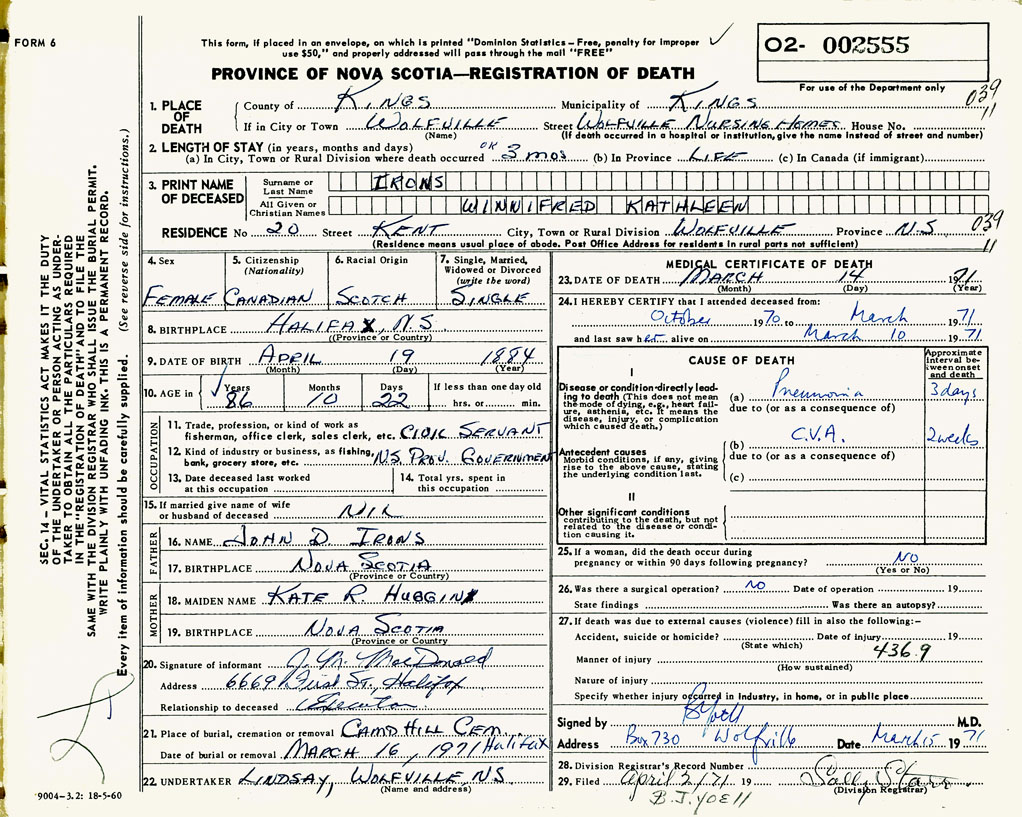 FORM 6
This form, if placed in an envelope, on which is printed "Dominion Statistics – Free, penalty for improper
use $50," and properly addressed will pass through the mail "FREE"
PROVINCE OF NOVA SCOTIA—REGISTRATION OF DEATH
02- 002555
For use of the Department only
039
11
1. PLACE OF DEATH
County of KINGS Municipality of KINGS
If in City or Town WOLFVILLE Street WOLFVILLE NURSING HOMES House No.
(Name) (If death occurred in a hospital or institution, give the name instead of street and number)
2. LENGTH OF STAY (in years, months and days)
(a) In City, Town or Rural Division where death occurred 3 mos (b) In Province LIFE (c) In Canada (if immigrant)
3. PRINT NAME OF DECEASED
Surname or Last Name IRONS
All Given or Christian Names WINNIFRED KATHLEEN
RESIDENCE No 20 Street KENT City, Town or Rural Division WOLFVILLE Province N.S
039
11
(Residence means usual place of abode. Post Office Address for residents in rural parts not sufficient)
4. Sex FEMALE
5. Citizenship (Nationality) CANADIAN
6. Racial Origin SCOTCH
7. Single, Married, Widowed or Divorced (write the word) SINGLE
8. BIRTHPLACE HALIFAX, N.S
(Province or Country)
9. DATE OF BIRTH APRIL 19 1884
(Month) (Day) (Year)
10. AGE in Years 86 Months 10 Days 22 If less than one day old hrs. or min.
OCCUPATION
11. Trade, profession, or kind of work as fisherman, office clerk, sales clerk, etc. CIVIL SERVANT
12. Kind of industry or business, as fishing, bank, grocery store, etc. N.S. PROV. GOVERNMENT
13. Date deceased last worked at this occupation
14. Total yrs. spent in this occupation
15. If married give name of wife or husband of deceased NIL
FATHER
16. NAME JOHN D. IRONS
17. BIRTHPLACE NOVA SCOTIA
(Province or Country)
MOTHER
18. MAIDEN NAME KATE R HUBGIN
19. BIRTHPLACE NOVA SCOTIA
(Province or Country
20. Signature of informant J. M. MacDonald
Address 6669 First St., Halifax
Relationship to deceased Executor
21. Place of burial, cremation or removal CAMP HILL CEM.
Date of burial or removal MARCH 16, 1971 Halifax
22. UNDERTAKER LINDSAY, WOLFVILLE N.S.
(Name and address)
MEDICAL CERTIFICATE OF DEATH
23. DATE OF DEATH MARCH 14 1971
(Month) (Day) (Year)
24. I HEREBY CERTIFY that I attended deceased from:
October 1970 to March 1971
and last saw her alive on March 10 1971
CAUSE OF DEATH
Approximate interval between onset and death
I
Disease or condition directly leading to death (This does not mean the mode of dying, e.g., heart failure, asthenia, etc. It means the disease, injury, or complication which caused death.)
(a) Pneumonia 3 days
due to (or as a consequence of)
Antecedent causes
Morbid conditions, if any, giving rise to the above cause, stating the underlying condition last.
(b) C.V.A. 2 weeks
due to (or as a consequence of)
(c)
II
Other significant conditions
contributing to the death, but not related to the disease or condition causing it.
25. If a woman, did the death occur during pregnancy or within 90 days following pregnancy? NO
(Yes or No)
26. Was there a surgical operation? NO Date of operation 19
State findings Was there an autopsy?
27. If death was due to external causes (violence) fill in also the following:–
Accident, suicide or homicide? Date of injury 19
(State which)
436.9
Manner of injury
(How sustained)
Nature of injury
Specify whether injury occurred in industry, in home, or in public place
Signed by BJYoell M.D.
Address Box 730 Wolfville Date March 15 1971
28. Division Registrar's Record Number
29. Filed April 2/71 19 Sally Starr
(Division Registrar)
B.J. YOEll
SEC. 14 – VITAL STATISTICS ACT MAKES IT THE DUTY
OF THE UNDERTAKER OR PERSON ACTING AS UNDER-
TAKER TO OBTAIN ALL THE PARTICULARS REQUIRED
IN THE "REGISTRATION OF DEATH" AND TO FILE THE
SAME WITH THE DIVISION REGISTRAR WHO SHALL ISSUE THE BURIAL PERMIT.
WRITE PLAINLY WITH UNFADING INK. THIS IS A PERMANENT RECORD.
Every item of information should be carefully supplied. (See reverse side for instructions.)
9004-3.2: 18-5-60